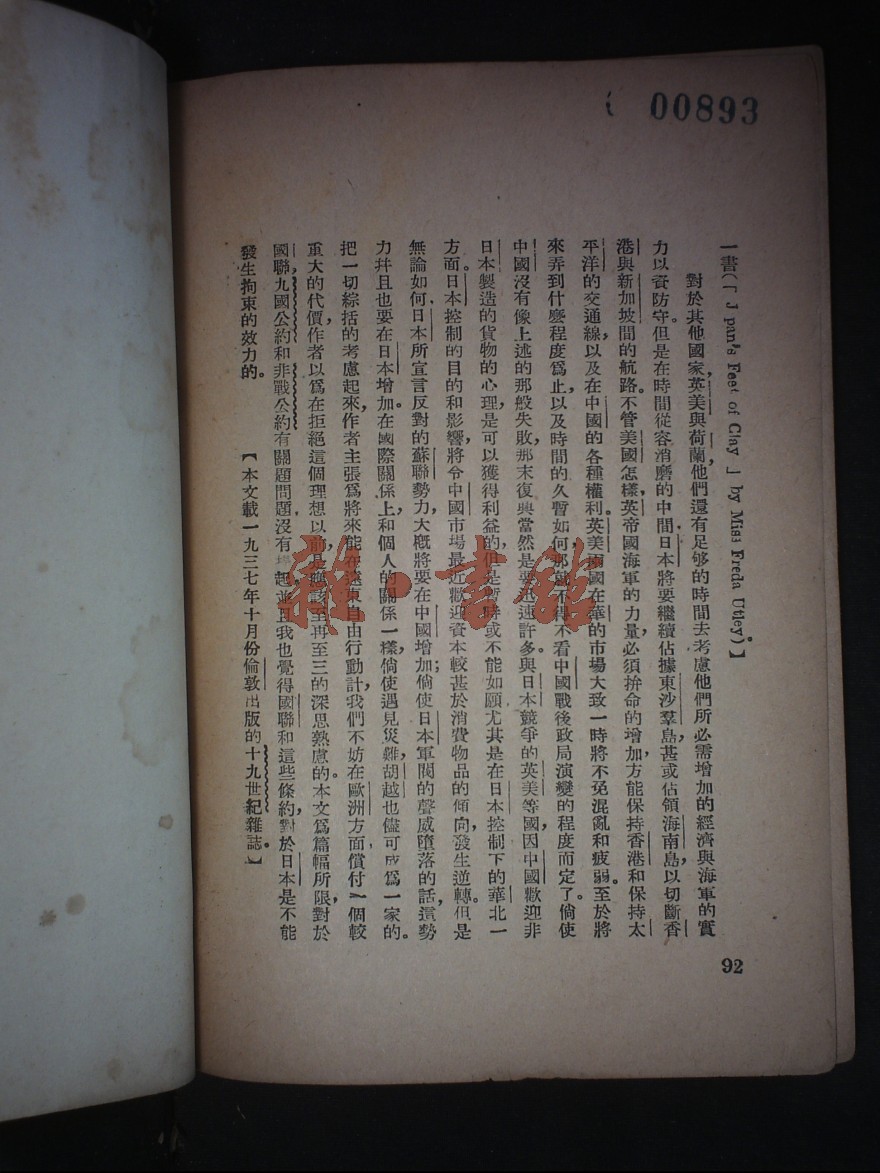 00893
一書(「J pan's Feet of Clay」 by Miss Freda Utley)】
對於其他國家，英美與荷蘭，他們還有足够的時間去考慮他們所必需增加的經濟與海軍的實
力以資防守。但是在時間從容消磨的中間，日本將要繼續佔據東沙羣島，甚或佔領海南島，以切斷香
港與新加坡間的航路。不管美國怎樣，英帝國海軍的力量，必須拚命的增加，方能保持香港和保持太
平洋的交通線，以及在中國的各種權利。英美兩國在華的市場大致一時將不免混亂和疲弱。至於將
來弄到什麼程度爲止，以及時間的久暫如何，那就不得不看中國戰後政局演變的程度而定了。倘使
中國沒有像上述的那般失敗，那末復興當然是要迅速許多。與日本競爭的英美等國，因中國歡迎非
日本製造的貨物的心理，是可以獲得利益的，但是暫時或不能如願，尤其是在日本控制下的華北一
方面。日本控制的目的和影響，將令中國市場最近歡迎資本較甚於消費物品的傾向，發生逆轉。但是
無論如何，日本所宣言反對的蘇聯勢力，大概將要在中國增加；倘使日本軍閥的聲威墮落的話，這勢
力幷且也要在日本增加。在國際關係上，和個人的關係一樣，倘使遇見災難，胡越也儘可成爲一家的。
把一切綜括的考慮起來，作者主張爲將來能在遠東自由行動計，我們不妨在歐洲方面償付一個較
重大的代價，作者以爲在拒絕這個理想以前，是應該至再至三的深思熟慮的。本文爲篇幅所限，對於
國聯，九國公約和非戰公約有關題問題沒有 起，並且我也覺得國聯和這些條約，對於日本是不能
發生拘束的效力的。
【本文載一九三七年十月份倫敦出版的十九世紀雜誌。】
92
雜·書館